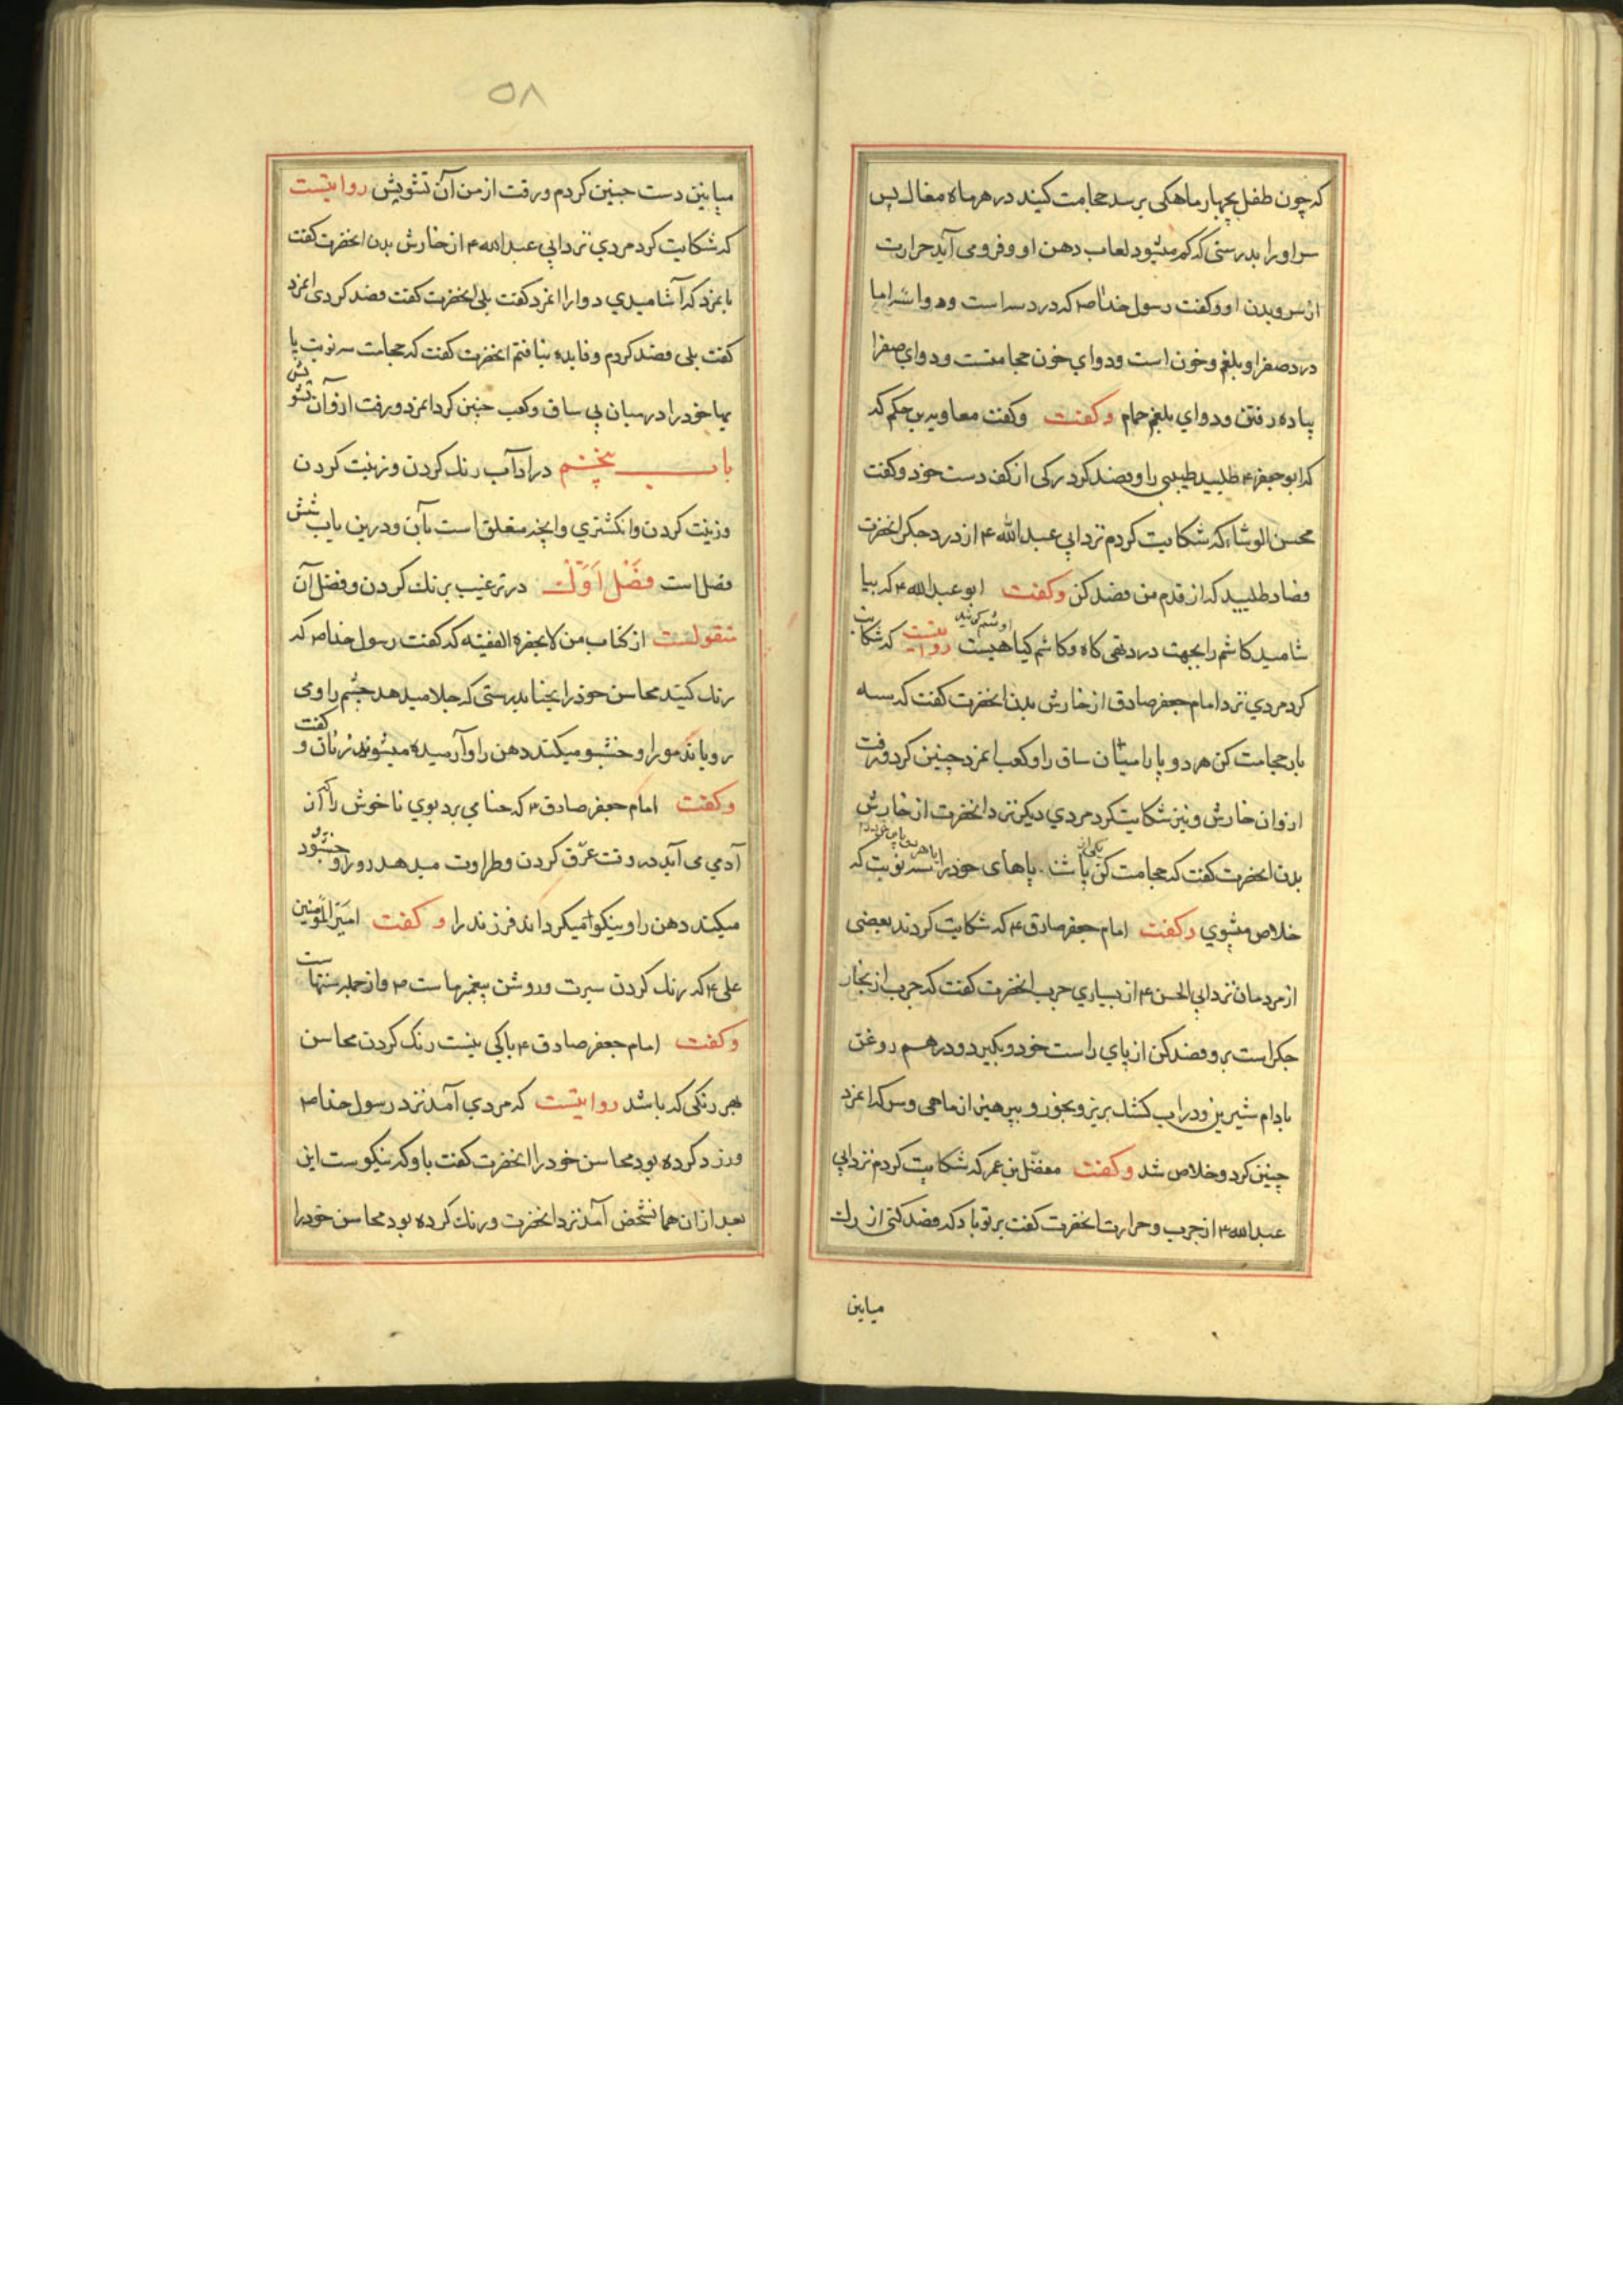 که چون طفل بچهار ماهکی برسد حجامت کنید در هر ماه مغاک پس
سر او را بدرستی که کم میشود لعاب دهن او و فرو می آید حرارت
از سر و بدن او و کفت رسول خدا ص که درد سه است و دوا سه اما
درد صفرا و بلغم و خون است و دوای خون حجامتست و دوای صفرا
پیاده رفتن و دوای بلغم حمام وکفت وکفت معاویه بن حکم که
که ابو جعفر ۴ طلبید طبیبی را و فصد کرد رکی از کف دست خود و کفت
محسن الوشاء که شکایت کردم نزد ابی عبد الله ۴ از درد جکر انحضرت
فصاد طلبید که از قدم من فصد کن وکفت ابو عبد الله ۴ که بیا
شامید کاشم را بجهت درد تهی کاه و کاشم کیاهیست روایتست که شکایت
کرد مردی نزد امام جعفر صادق از خارش بدن انحضرت کفت که سه
بار حجامت کن هر دو پا را میان ساق را و کعب انمرد چنین کرد و رفت
ازو ان خارش و نیز شکایت کرد مردی دیکر نزد انحضرت از خارش
بدن انحضرت کفت که حجامت کن یکی از پاهای خود را سه نوبت که
خلاص میشوی وکفت امام جعفر صادق ۴ که شکایت کردند بعضی
از مردمان نزد ابی الحسن ۴ از بسیاری جرب انحضرت کفت که جرب از بخار
جکر است برو فصد کن از پای راست خود و بکیر دو درهم روغن
بادام شیرین و در اب کشک بریز و بخور و بپرهیز از ماهی و سرکه انمرد
چنین کرد و خلاص شد وکفت مفضل بن عمر که شکایت کردم نزد ابی
عبد الله ۴ از جرب و حرارت انحضرت کفت بر تو باد که فصد کنی از رک
میابین
۵۸
میابین دست چنین کردم و رفت از من آن تشویش روایتست
که شکایت کرد مردی نزد ابی عبد الله ۴ از خارش بدن انحضرت کفت
بانمرد که آشامیدی دوا را انمرد کفت بلی انحضرت کفت فصد کردی انمرد
کفت بلی فصد کردم و فایده نیافتم انحضرت کفت که حجامت سه نوبت پا
یها خود را در میان پی ساق و کعب چنین کرد انمرد و رفت ازو آن تشویش
باب پنجم در اداب رنک کردن و زینت کردن
و زینت کردن و انکشتری و انچه متعلق است بآن و درین باب شش
فصل است فصل اول در ترغیب برنک کردن و فضل آن
منقولست از کتاب من لا یحضره الفقیه که کفت رسول خدا ص که
رنک کنید محاسن خود را بحنا بدرستی که جلا میدهد چشم را و می
رویاند مو را و خشبو میکند دهن را و آرمیده میشوند زنان و کفت
وکفت امام جعفر صادق ۴ که حنا می برد بوی ناخوش را که از
آدمی می آید در وقت عرق کردن و طراوت میدهد رو را و خشبود
میکند دهن را و نیکو میکرداند فرزند را وکفت امیر المومنین
علی ۴ که رنک کردن سیرت و روشن پیغمبرها ست ص و از جمله سنتهاست
وکفت امام جعفر صادق ۴ باکی نیست رنک کردن محاسن
بهر رنکی که باشد روایتست که مردی آمد نزد رسول خدا ص
و زرد کرده بود محاسن خود را انحضرت کفت باو که نیکوست این
بعد از ان همانشخص آمد نزد انحضرت و رنک کرده بود محاسن خود را